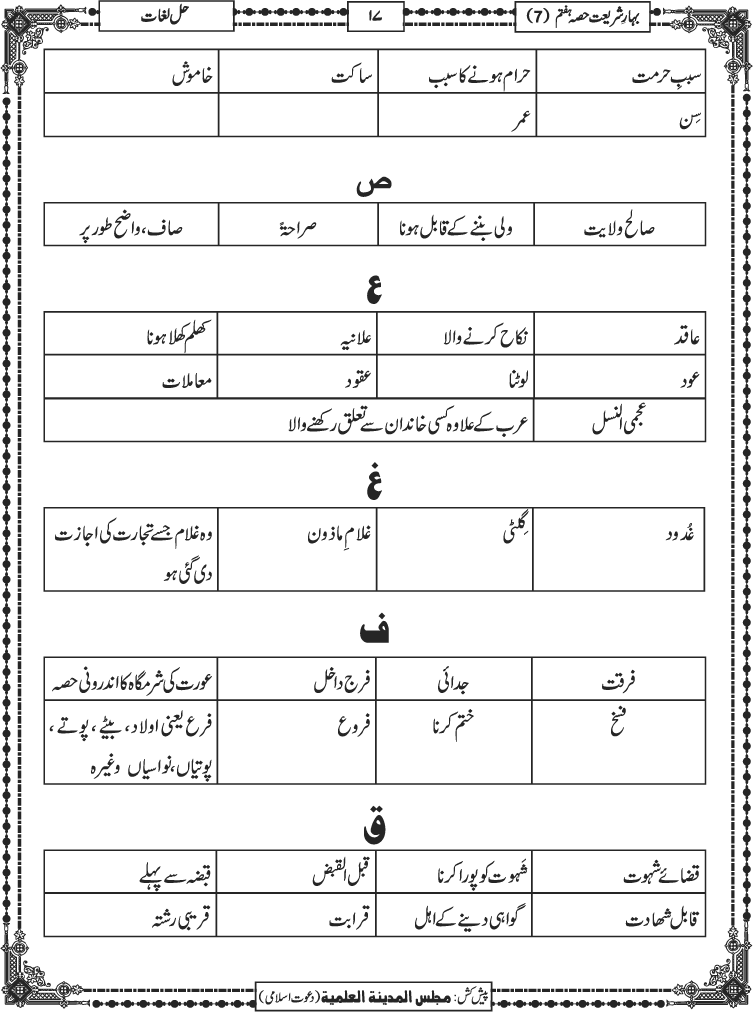 بہارِ شریعت حصہ ہفتم (7) ۱۷ حل لغات
سببِ حرمت حرام ہونے کا سبب ساکت خاموش
سِن عمر
ص
صالح ولایت ولی بننے کے قابل ہونا صراحۃً صاف، واضح طور پر
ع
عاقد نکاح کرنے والا علانیہ کھلم کھلا ہونا
عود لوٹنا عقود معاملات
عجمی النسل عرب کے علاوہ کسی خاندان سے تعلق رکھنے والا
غ
غُدود گِلٹی غلامِ ماذون وہ غلام جسے تجارت کی اجازت
دی گئی ہو
ف
فرقت جدائی فرج داخل عورت کی شرمگاہ کا اندرونی حصہ
فسخ ختم کرنا فروع فرع یعنی اولاد، بیٹے، پوتے،
پوتیاں، نواسیاں وغیرہ
ق
قضائے شہوت شَہوت کو پورا کرنا قبل القبض قبضہ سے پہلے
قابل شھادت گواہی دینے کے اہل قرابت قریبی رشتہ
پیش کش: مجلس المدینة العلمیة (دعوت اسلامی)